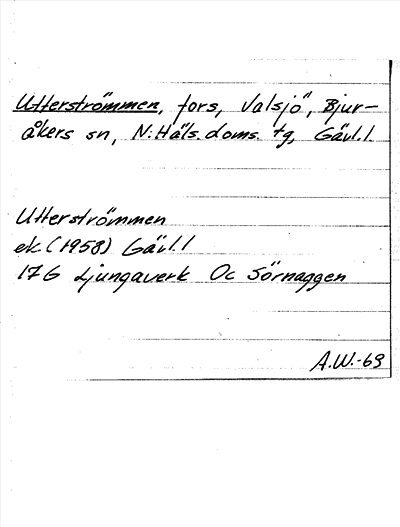 Utterströmmen, fors, Valsjö, Bjur-
åkers sn, N:Häls. doms. tg, Gävl.l.
Utterströmmen
ek (1958) Gävl.l
17G Ljungaverk Oc Sörnaggen
A.W.-69